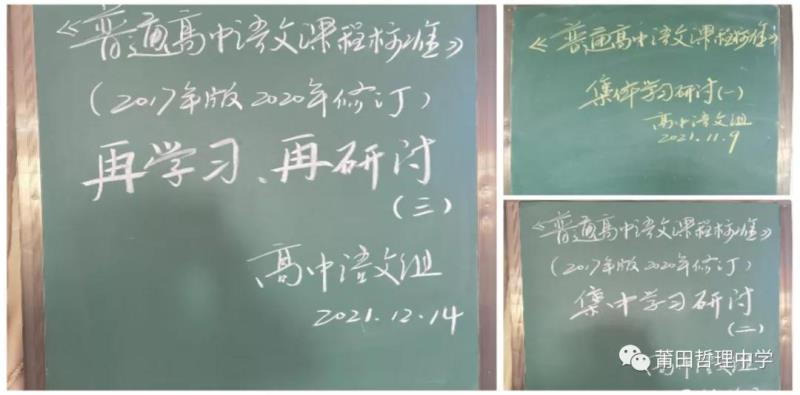 《普通高中语文课程标准》
（2017年版2020年修订）
再学习、再研讨
（三）
高中语文组
2021.12.14
《普通高中语文课程标准》
集体学习研讨（一）
高中语文组
2021.11.9
《普通高中语文课程标准》
（2017年版2020年修订）
集中学习研讨
（二）
高中语文组
莆田哲理中学